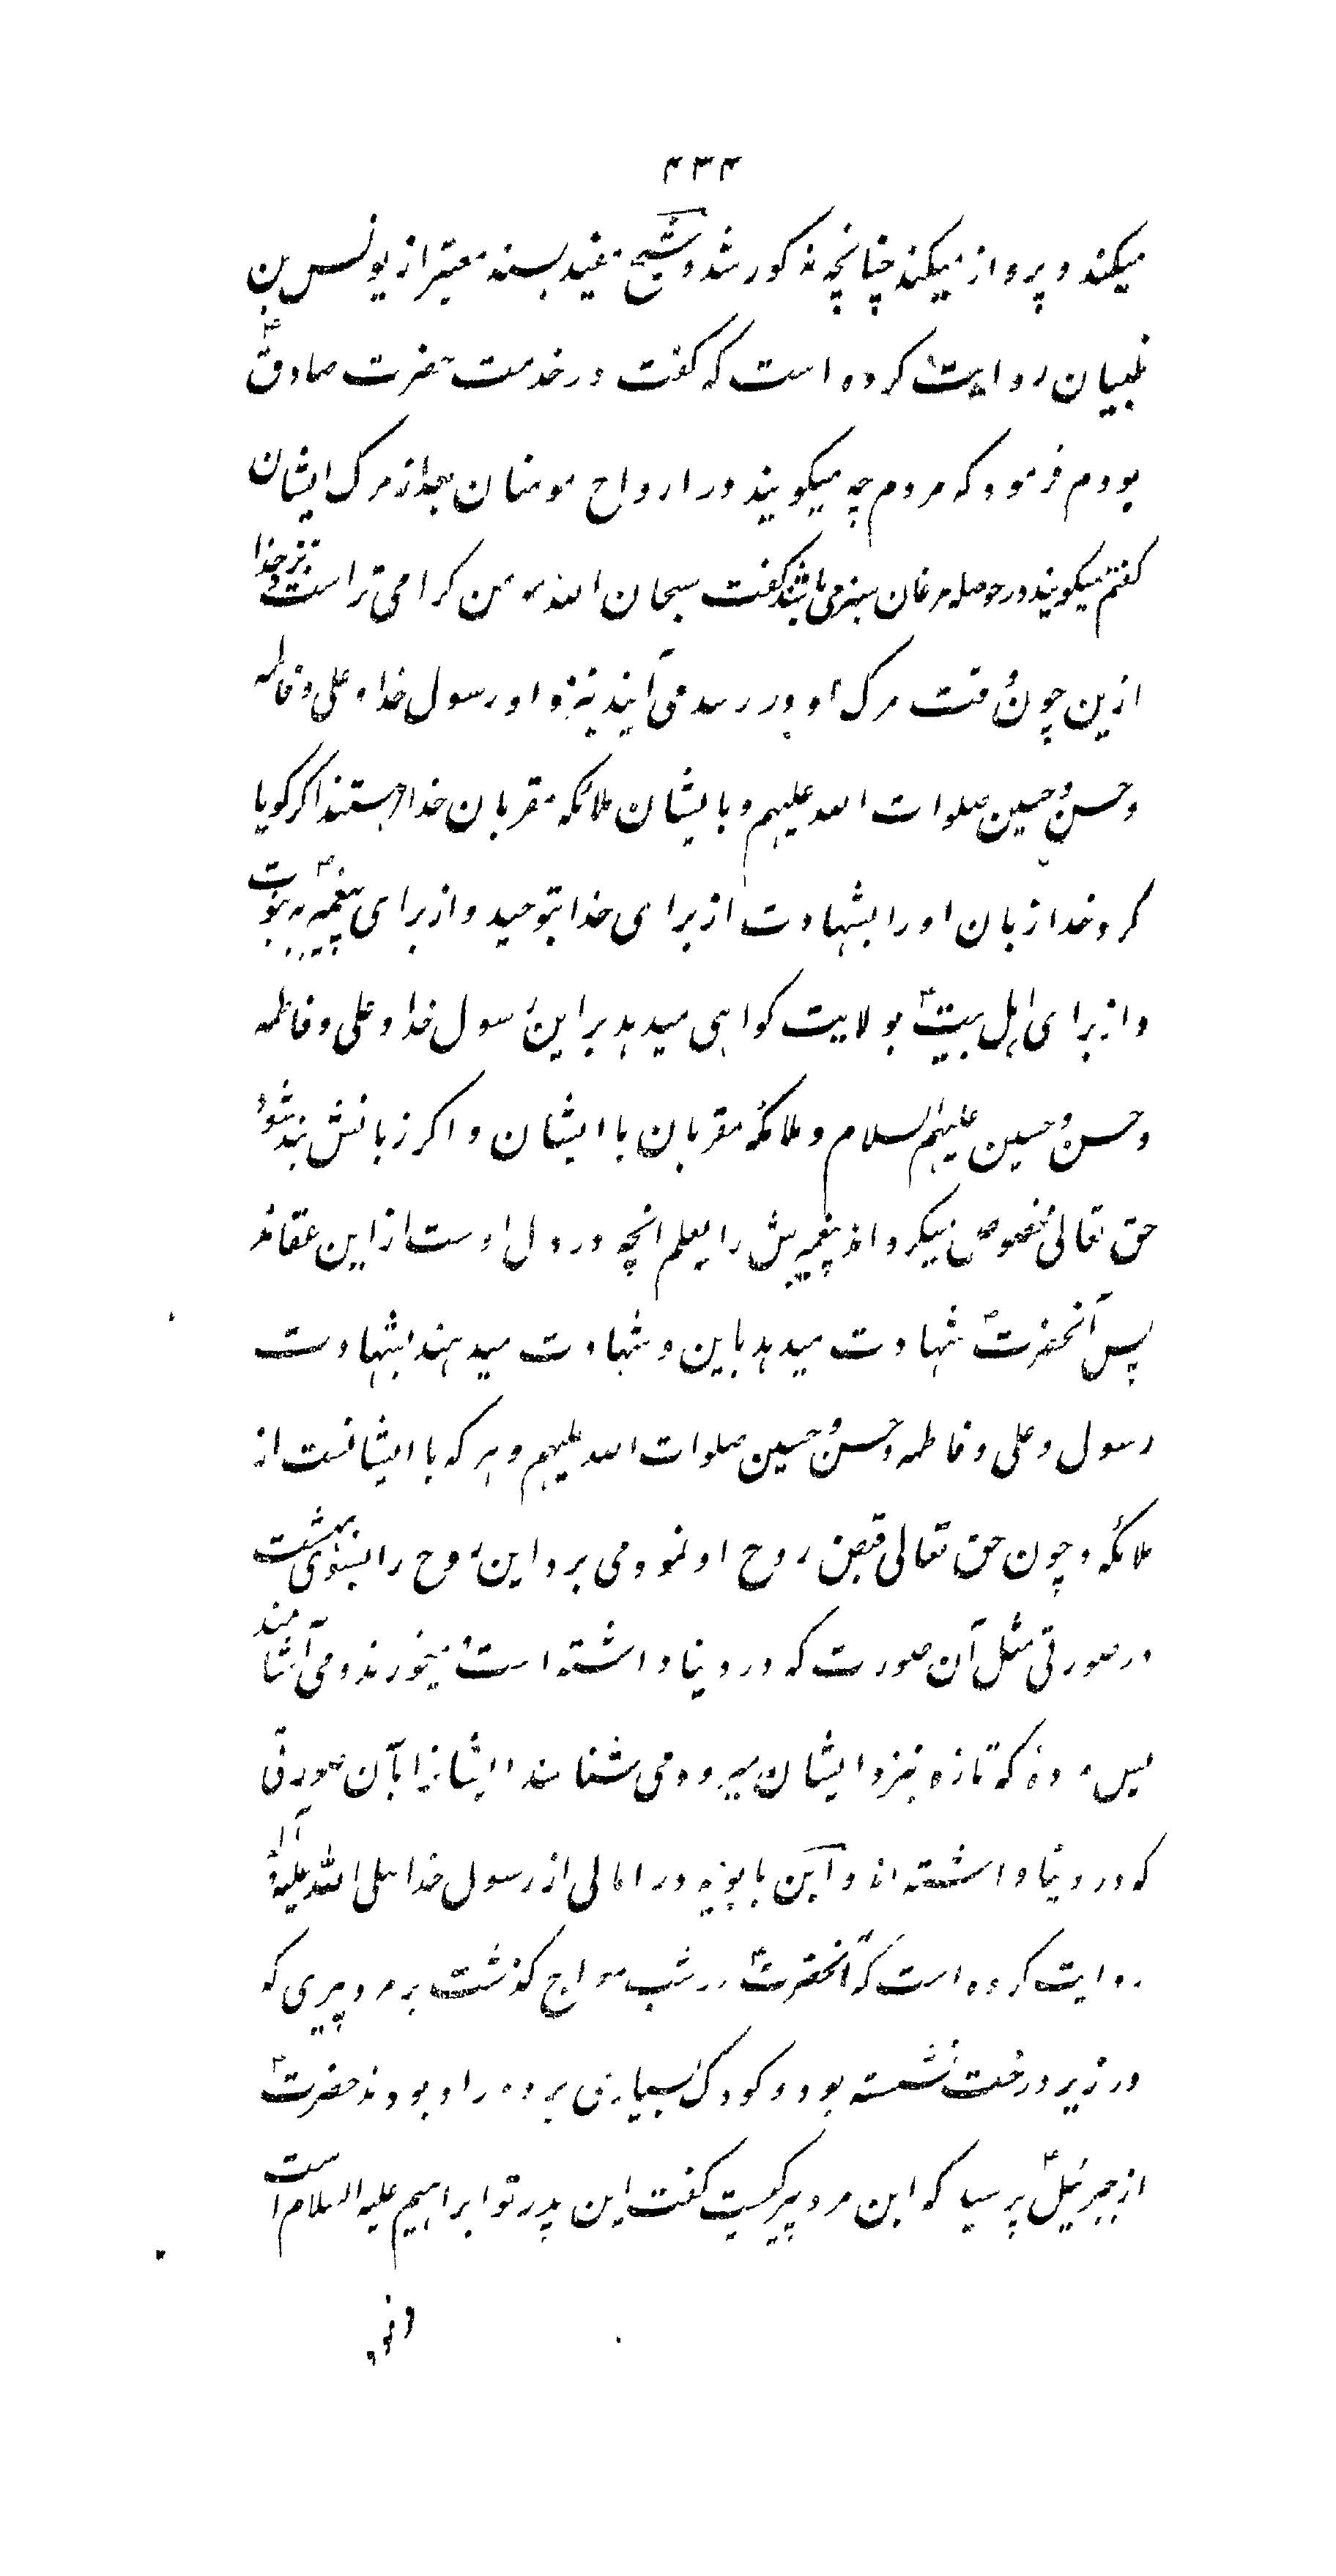 ۴۳۴
میکند و پرواز میکند چنانچه مذکور شد و شیخ مفید بسند معتبر از یونس بن
ظبیان روایت کرده است که گفت در خدمت حضرت صادق ع
بودم فرمود که مردم چه میکویند در ارواح مومنان بعد از مرک ایشان
کفتم میکویند در حوصله مرغان سبز می باشند کفت سبحان الله مومن کرامی تر است نزد خدا
ازین چون وقت مرک او در رسد می آیند بنزد او رسول خدا و علی و فاطمه
و حسن و حسین صلوات الله علیهم و با ایشان ملائکه مقربان خدا هستند اکر کویا
کرد خدا زبان او را بشهادت از برای خدا بتوحید و از برای پیغمبر به نبوت
و از برای اهل بیت ع بولایت کواهی میدهد بر این رسول خدا و علی و فاطمه
و حسن و حسین علیهم السلام و ملائکه مقربان با ایشان و اکر زبانش بند شود
حق تعالی مخصوص میکرداند پیغمبرش را بعلم انچه در دل اوست از این عقاند
پس آنحضرت ص شهادت میدهد باین و شهادت میدهند بشهادت
رسول و علی و فاطمه و حسن و حسین صلوات الله علیهم و هر که با ایشانست از
ملائکه و چون حق تعالی قبض روح او نمود می برد این روح را بسوی بهشت
در صورتی مثل آن صورت که در دنیا داشته است میخورند و می آشامند
پس مرده که تازه بنزد ایشان میرود می شناسد ایشانرا بآن صورتی
که در دنیا داشته اند و ابن بابویه در امالی از رسول خدا صلی الله علیه و آله
روایت کرده است که آنحضرت ص در شب معراج کذشت بر مرد پیری که
در زیر درخت نشسته بود و کودک بسیاری بر دور او بودند حضرت ص
از جبرئیل ع پرسید که این مرد پیر کیست کفت این پدر تو ابراهیم علیه السلام است